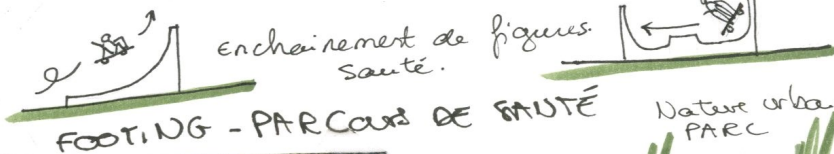 Enchainement de figures.
sauté.
FOOTING - PARCOURS DE SANTÉ
Nature urba
PARC